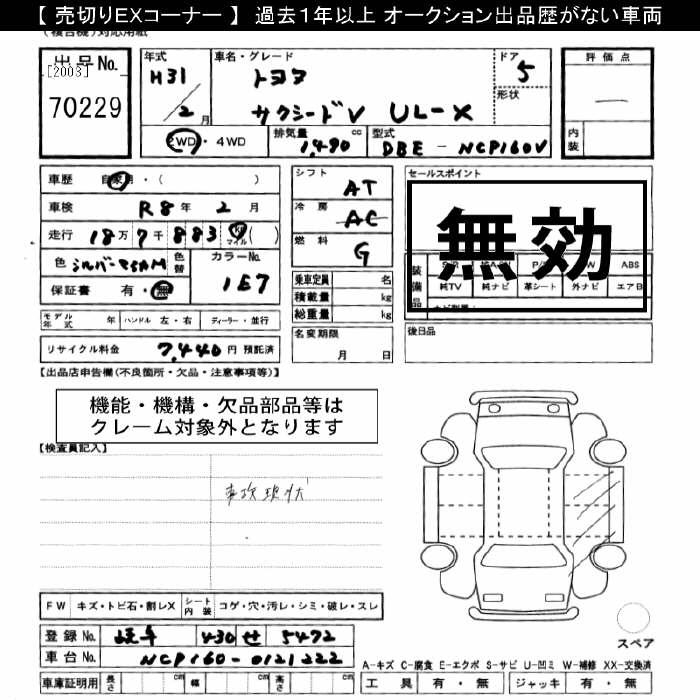 【 売切りEXコーナー 】 過去1年以上 オークション出品歴がない車両
(複合機)対応用紙
出品No.
[2003]
70229
年式
H31
2 月
車名・グレード
トヨタ
サクシードV UL-X
ドア
5
形状
評価点
内装
2WD ・ 4WD
排気量
1,490 cc
型式
DBE - NCP160V
車歴 自家用・( )
車検 R8年 2月
走行 18万7千883 km マイル ( )
色
色替
カラーNo.
1E7
保証書 有・無
モデル年式 年 ハンドル 左・右 ディーラー・並行
リサイクル料金 7,440 円 預託済
シフト AT
冷房 AC
燃料 G
乗車定員 名
積載量 kg
総重量 kg
名変期限
月 日
セールスポイント
無効
装備品
ABS
純TV 純ナビ 革シート 外ナビ エアB
後日品
【出品店申告欄(不良箇所・欠品・注意事項等)】
機能・機構・欠品部品等は
クレーム対象外となります
【検査員記入】
事故現状
FW キズ・トビ石・割レX シート内装 コゲ・穴・汚レ・シミ・破レ・スレ
登録No. 430 せ 5472
車台No. NCP160-0121222
車庫証明用 長さ cm 幅 cm 高さ cm
スペア
A-キズ C-腐食 E-エクボ S-サビ U-凹ミ W-補修 XX-交換済
工具 有・無 ジャッキ 有・無